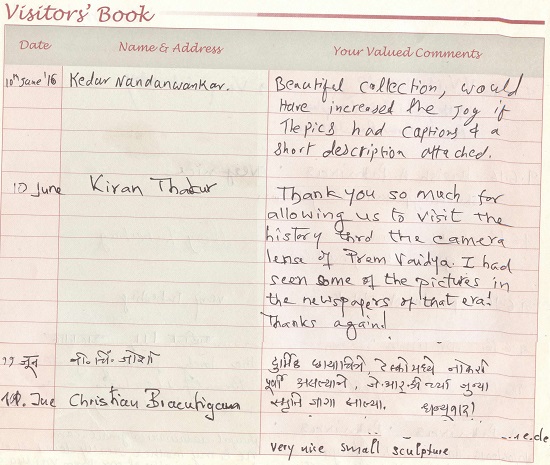 Visitors' Book
Date Name & Address Your Valued Comments
10th June '16 Kedar Nandanwankar. Beautiful collection, would
Have increased the Joy if
The pics had captions & a
short description attached.
10 June Kiran Thakur Thank you so much for
allowing us to visit the
history thro the camera
lense of Prem Vaidya. I had
seen some of the pictures in
the newspapers of that era!
Thanks again!
११ जून नी. चिं. जोशी दुर्मिळ छायाचित्रे टेल्कोमध्ये नोकरी
पूर्वी असल्याने, जे.आर.डीं च्या जुन्या
स्मृति जाग्या झाल्या. धन्यवाद!
Christian
very nice small sculpture